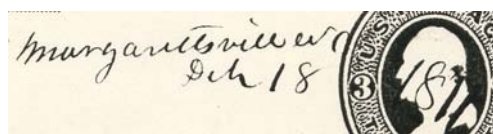 Margarettsville NC
Feb 18
U.S.
3
18